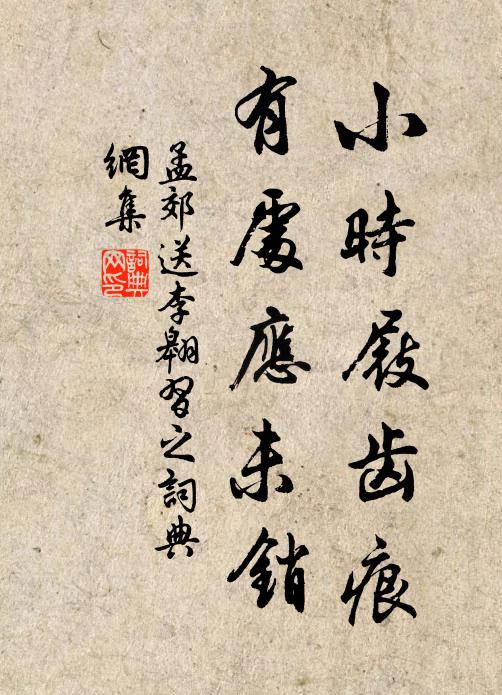 小時屐齒痕
有處應未銷
孟郊送李翱習之詞典
網集
詞典
网印